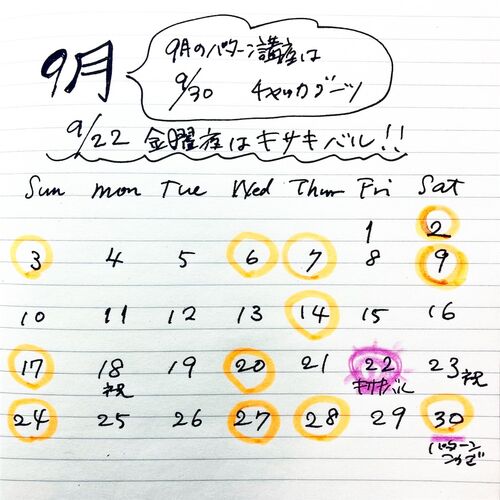 9月
9月のパターン講座は
9/30 キャッカブーツ
9/22 金曜夜はキサキバル!!
Sun mon Tue Wed Thur Fri Sat
1 2
3 4 5 6 7 8 9
10 11 12 13 14 15 16
17 18 19 20 21 22 23祝
祝 キサキバル
24 25 26 27 28 29 30
パターン
コウザ